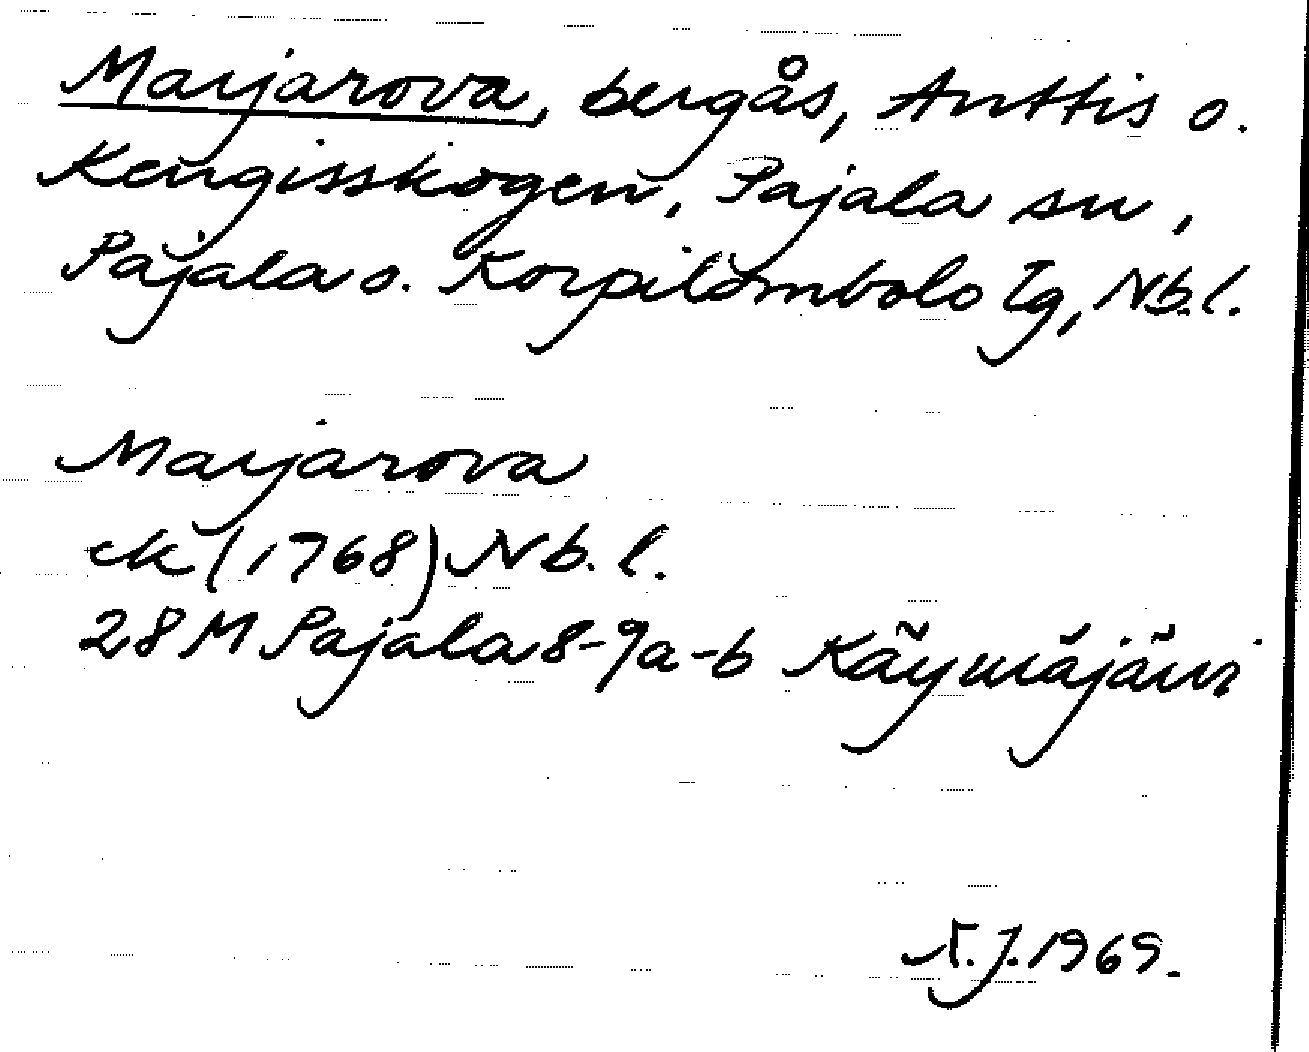 Marjarova, bergås, Anttis o.
Kengisskogen, Pajala sn,
Pajala o. Korpilombolo Tg, Nb.l.
Marjarova
ek (1768) Nb. l.
28 M Pajala 8-9a-b Käymäjärvi
J. 1969.